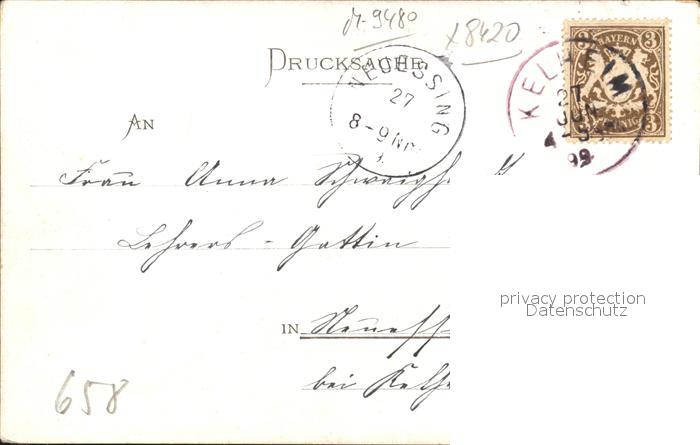 M-9480
x8420
DRUCKSACHE
NEUESSING
27
8-9 NM
KELHEIM
27
JUN
99
BAYERN
3 3
3 3
PFENNIG
AN
Frau Anna
Lehrers-Gattin
IN Neuess
bei Kelh
privacy protection
Datenschutz
658